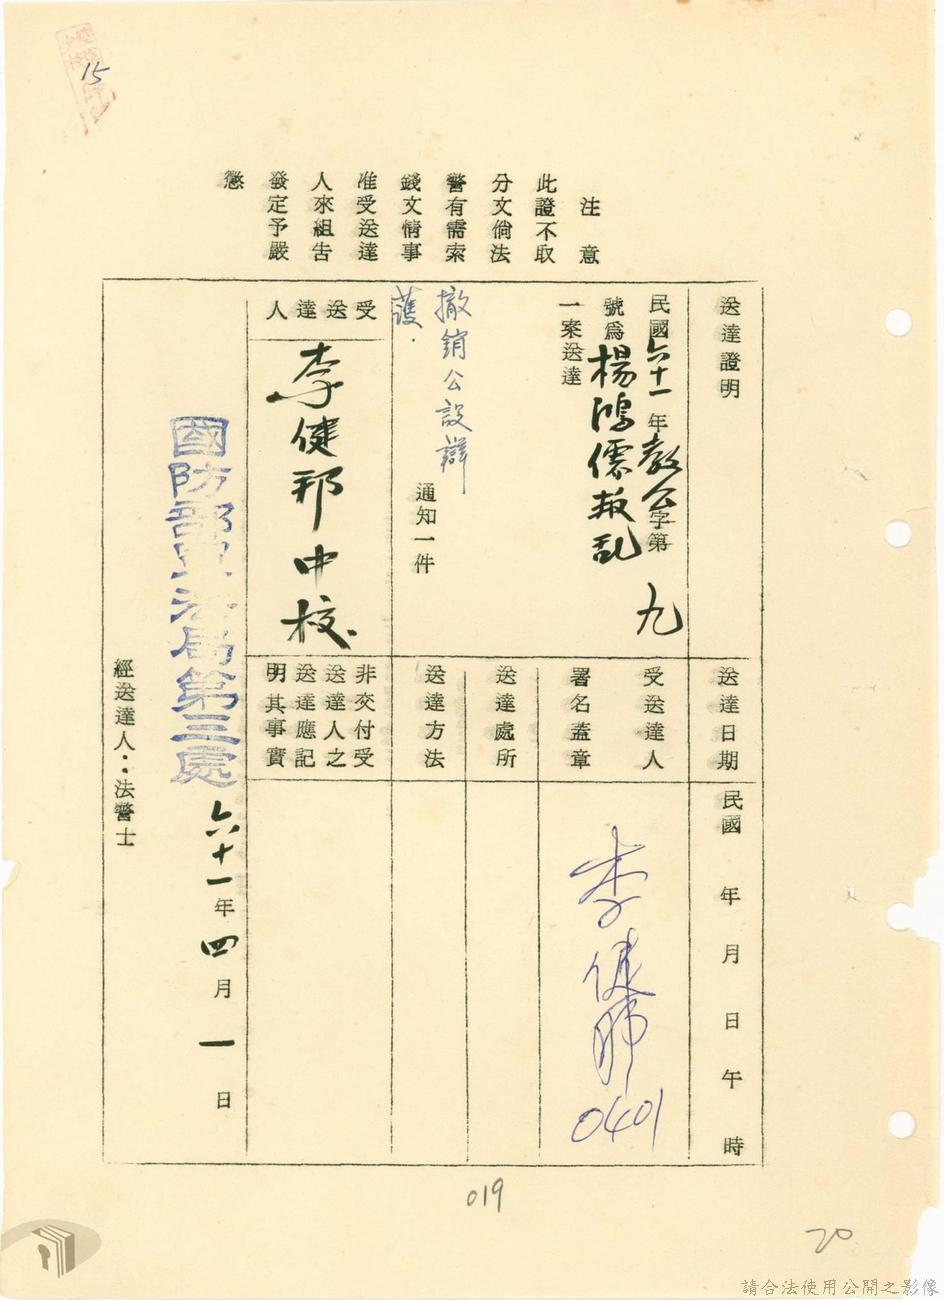 15
注意
此證不取
分文倘法
警有需索
錢文情事
准受送達
人來組告
發定予嚴
懲
送達證明
民國六十一年教公字第九
號為楊鴻儒叛乱
一案送達
撤銷公設辯
護.
通知一件
受送達人
李健邦中校.
送達日期
民國 年 月 日 午 時
受送達人
署名蓋章
李健邦
0401
送達處所
送達方法
非交付受
送達人之
送達應記
明其事實
國防部軍法局第三處
六十一年四月一日
經送達人：法警士
019
20
請合法使用公開之影像